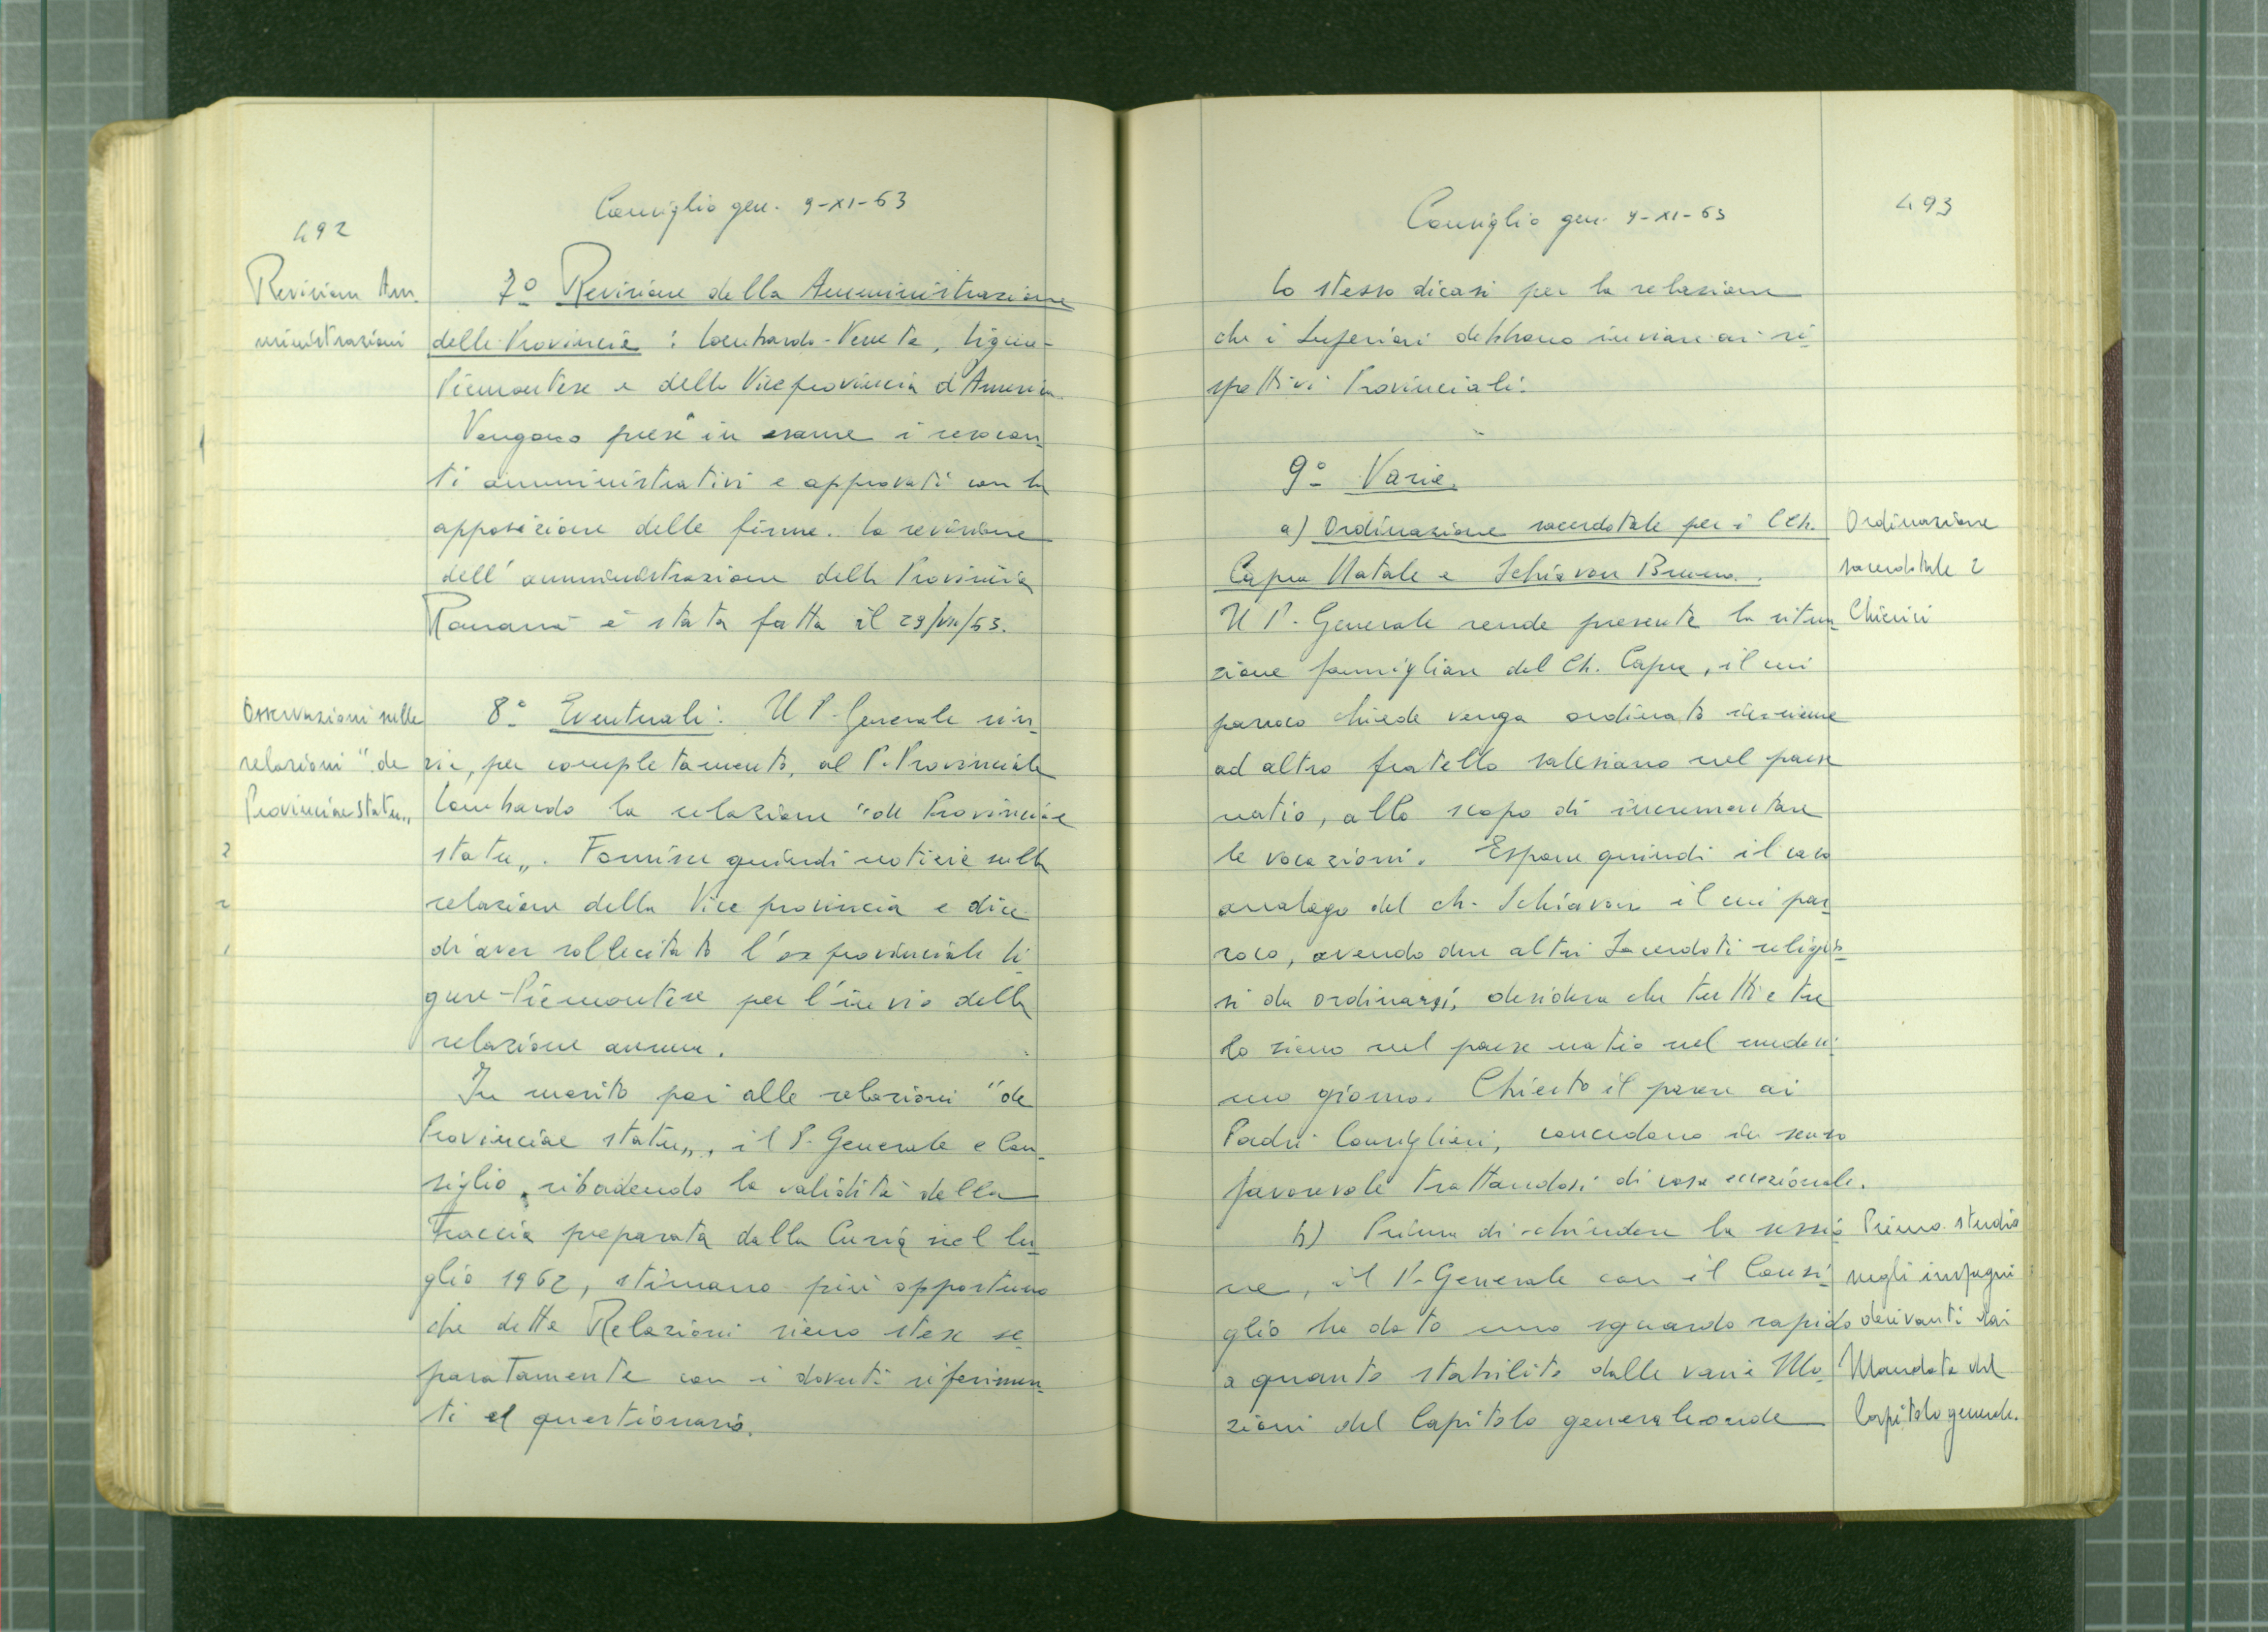 492
Consiglio gen. 9-XI-63
Revisione Am.
ministrazioni
7º Revisione della Amministrazione
delle Provincie : Lombardo-Veneta, Ligure-
Piemontese e della Viceprovincia d'America.
Vengono prese in esame i resocon-
ti amministrativi e approvati con la
apposizione delle firme. La revisione
dell'amministrazione della Provincia
Romana è stata fatta il 29/VII/63.
Osservazioni sulle
relazioni "de
Provinciae statu„
8º Eventuali: Il P. Generale rin-
via, per completamento, al P. Provinciale
Lombardo la relazione "de Provinciae
statu„. Fornisce quindi notizie sulla
relazione della Vice provincia e dice
di aver sollecitato l'ex provinciale Li-
gure-Piemontese per l'invio della
relazione annua.
In merito poi alle relazioni "de
Provinciae statu„, il P. Generale e Con-
siglio, ribadendo la validità della
Traccia preparata dalla Curia nel lu-
glio 1962, stimano più opportuno
che dette Relazioni sieno stese se-
paratamente con i dovuti riferimen-
ti al questionario.
493
Consiglio gen. 9-XI-63
Lo stesso dicasi per la relazione
che i Superiori debbano inviare ai ri-
spettivi Provinciali.
9º Varie.
a) Ordinazione sacerdotale per i CCh.
Capra Natale e Schiavon Bruno.
Ordinazione
sacerdotale 2
Chierici
Il P. Generale rende presente la situa-
zione famigliare del Ch. Capra, il cui
parroco chiede venga ordinato insieme
ad altro fratello salesiano nel paese
natio, allo scopo di incrementare
le vocazioni. Espone quindi il caso
analogo del ch. Schiavon il cui par-
roco, avendo due altri Sacerdoti religio-
si da ordinarsi, desidera che tutti e tre
lo siano nel paese natio nel medesi-
mo giorno. Chiesto il parere ai
Padri Consiglieri, concedono in senso
favorevole trattandosi di cosa eccezionale.
b) Prima di chiudere la sessio-
ne, il P. Generale con il Consi-
glio ha dato uno sguardo rapido
a quanto stabilito dalle varie Mo-
zioni del Capitolo generale onde
Primo studio
sugli impegni
derivanti dai
Mandata del
Capitolo generale.